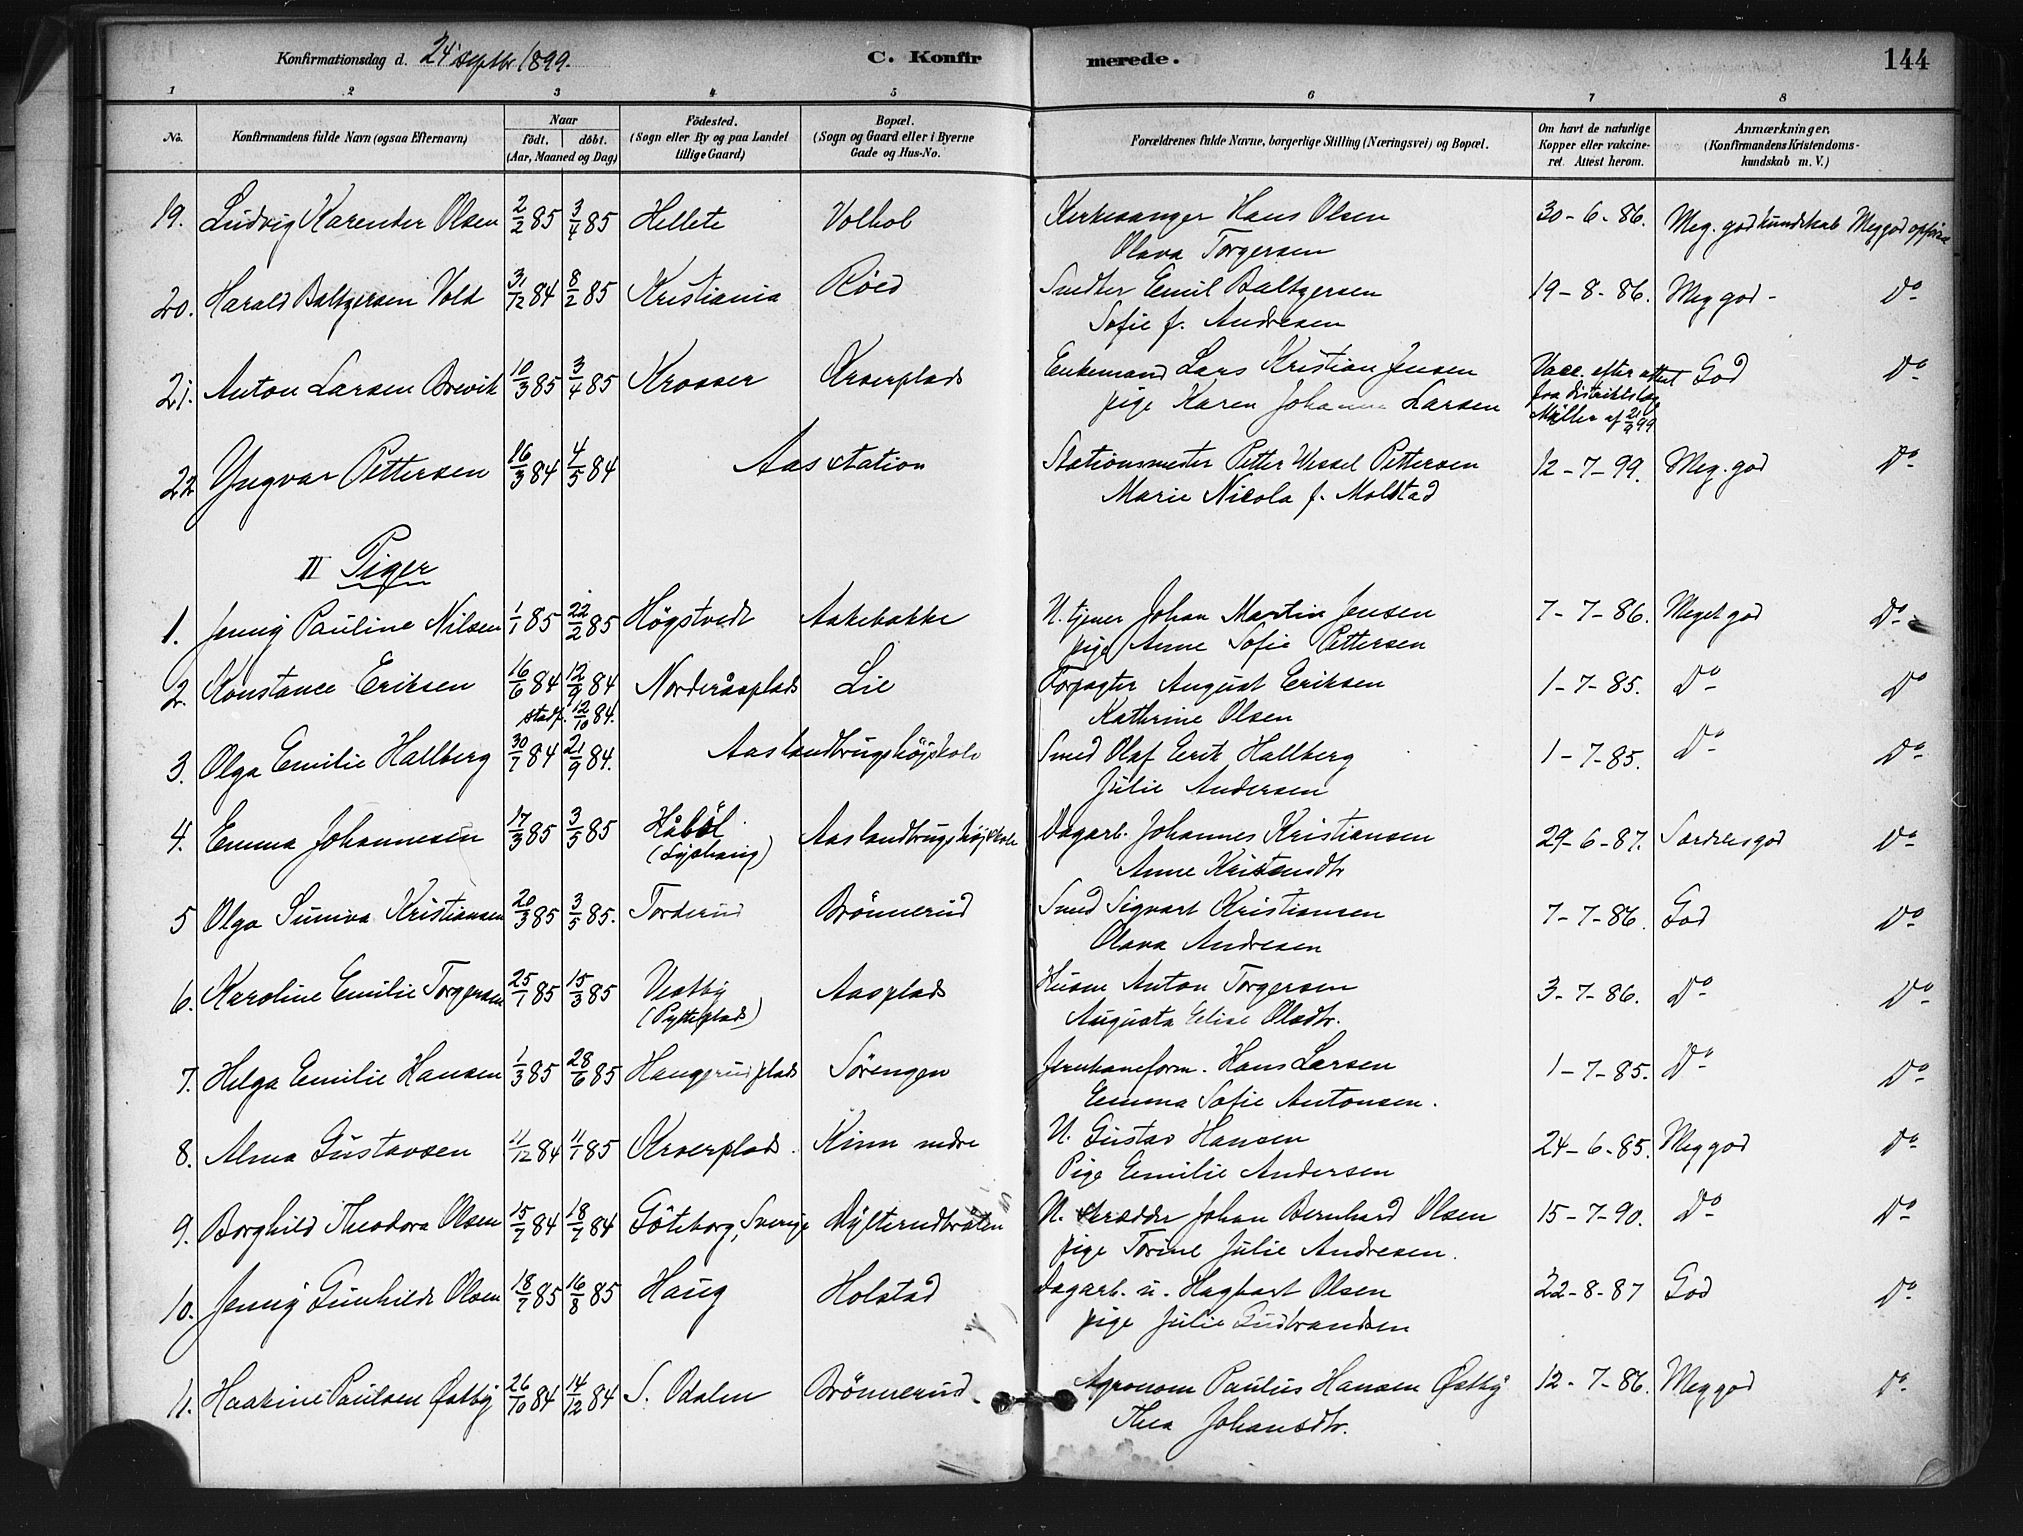 Konfirmationsdag d. 24 septbr 1899. C. Konfirmerede. 144
1 2 3 4 5 6 7 8
No. Konfirmandens fulde Navn (ogsaa Efternavn) Naar født. døbt. (Aar, Maaned og Dag) Fødested. (Sogn eller By og paa Landet tillige Gaard) Bopæl. (Sogn og Gaard eller i Byerne Gade og Hus-No. Forældrenes fulde Navne, borgerlige Stilling (Næringsvei) og Bopæl. Om havt de naturlige Kopper eller vakcineret. Attest herom. Anmærkninger. (Konfirmandens Kristendomskundskab m. V.)
19. Ludvig Karender Olsen 2/2 85 3/4 85 Hellete Volhob Kirkesanger Hans Olsen 30-6-86. Meg. god kundskab Meg god opførsel
Olava Torgersen
20. Harald Baltzersen Vold 31/12 84 8/2 85 Kristiania Røed Snedker Emil Baltzersen 19-8-86. Meg god - Do
Sofie f. Andresen
21. Anton Larsen Brevik 10/3 85 3/4 85 Krosser Krserplads Enkemand Lars Kristian Jensen Vacc. efter attest God Do
pige Karen Johanne Larsen fra distriktslæge
Müller af 21/9 99
22 Yngvar Pettersen 16/3 84 4/5 84 Aas station Stationsmester Petter Wessel Pettersen 12-7-99. Meg. god Do
Marie Nicola f. Molstad
II Piger
1. Jenny Pauline Nilsen 1/1 85 22/2 85 Högstvedt Aakebakke U. tjener Johan Martin Jensen 7-7-86. Meget god Do
pige Anne Sofie Pettersen
2. Konstance Eriksen 16/6 84 12/9 84 Norderåsplads Lie Forpagter August Eriksen 1-7-85. Do Do
stadf. 12/10 84. Kathrine Olsen
3. Olga Emilie Hallberg 30/7 84 21/9 84. Aas landbrugshøjskole Smed Olaf Erik Hallberg 1-7-85. Do Do
Julie Andersen
4. Emma Johannesen 17/3 85 3/5 85 Håbøl Aas landbrugshøjskole Dagarb. Johannes Kristiansen 29-6-87. Særdeles god Do
Anne Kristensdtr
5 Olga Suniva Kristiansen 20/3 85 3/5 85. Torderud Brönnerud Smed Sigvart Kristiansen 7-7-86. God Do
Olava Andresen
6. Karoline Emilie Torgersen 25/1 85 15/3 85 Vestby Aasplads Husm Anton Torgersen 3-7-86. Do Do
(Pytteplads) Augusta Elise Olsdtr.
7. Helga Emilie Hansen 1/3 85 28/6 85 Haugerudplads Sörengen Jernbaneform. Hans Larsen 1-7-85. Do Do
Emma Sofie Antonsen.
8. Alma Gustavsen 11/12 84 11/1 85 Krserplads. Kinn nedre U. Gustav Hansen 24-6-85. Meg god Do
Pige Emilie Andersen
9. Borghild Theodora Olsen 15/7 84 18/7 84 Göteborg, Sverige Dylterudbråten U. skrædder Johan Bernhard Olsen 15-7-90. Do Do
pige Torine Julie Andresen.
10. Jenny Gunhilde Olsen 18/7 85 16/8 85 Haug Holstad Dagarb. u. Hagbart Olsen 22-8-87 God Do
pige Julie Gudbrandsen
11. Haakine Paulsen Østby 26/10 84 14/12 84 S. Odalen Brönnerud. Agronom Paulus Hansen Østby 12-7-86. Meg god Do
Thea Johansdtr.